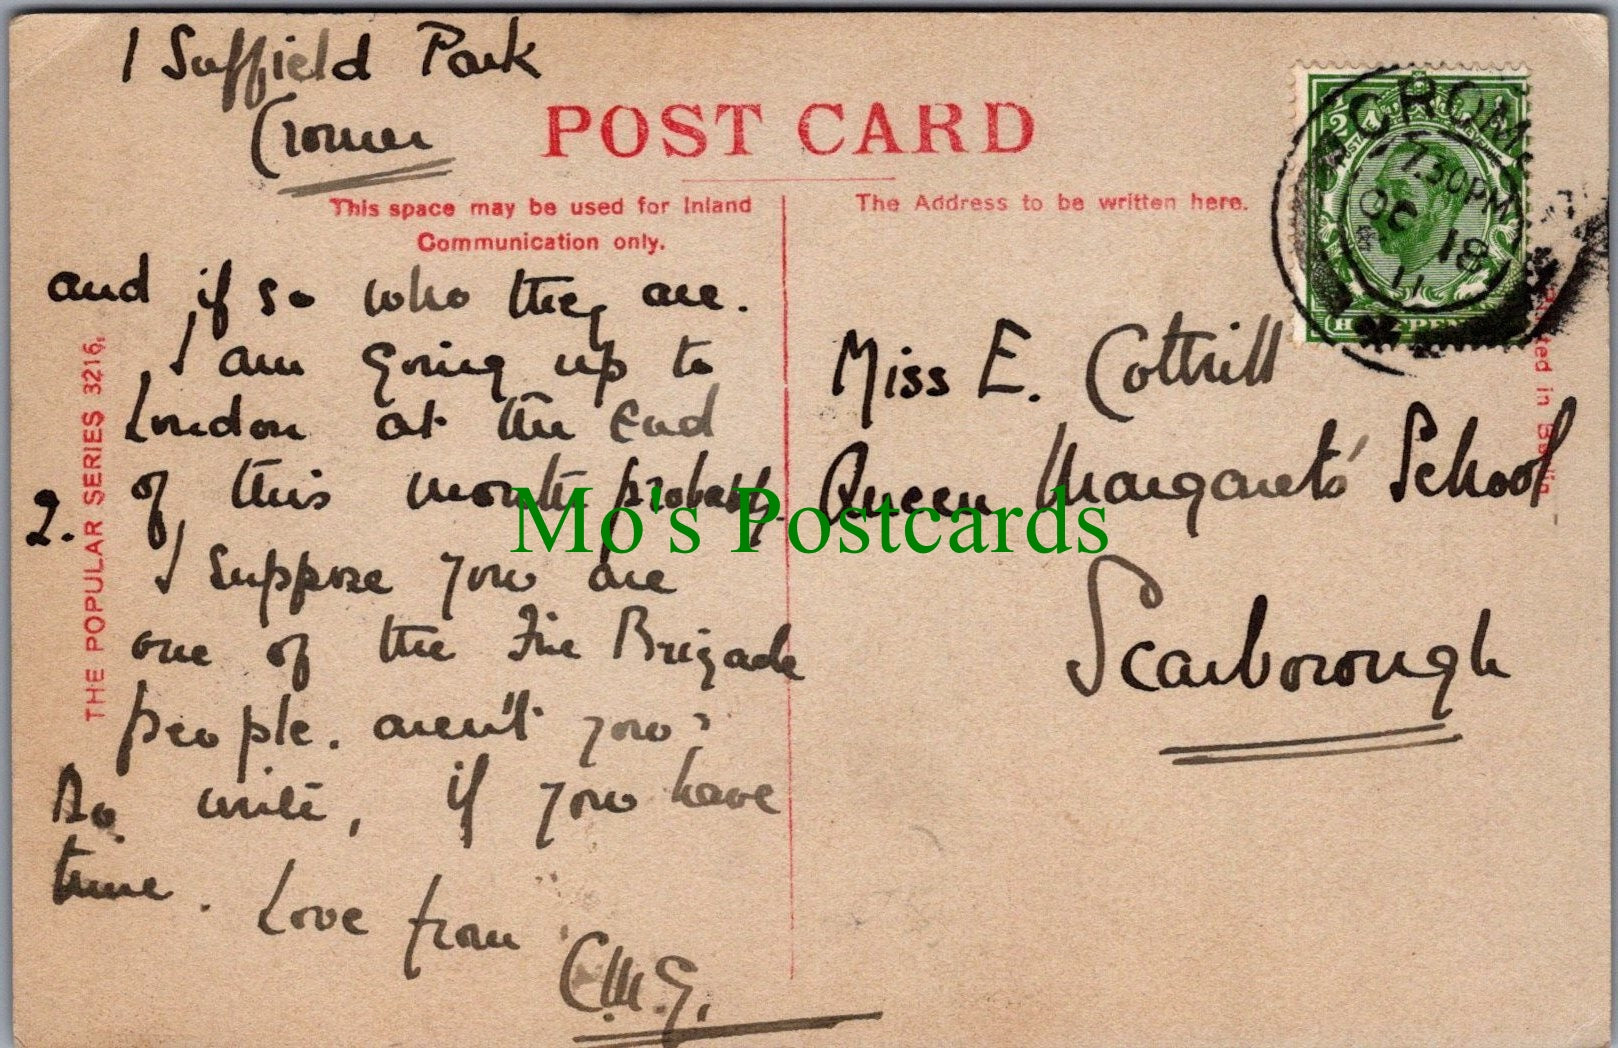 1 Suffield Park
Cromer
POST CARD
This space may be used for Inland
Communication only.
The Address to be written here.
CROME
7.30PM
OC 18
11
HALFPENNY
THE POPULAR SERIES 3216.
2.
and if so who they are.
I am going up to
London at the end
of this month probably.
I suppose you are
one of the Fire Brigade
people. aren't you?
Do write, if you have
time.
Love from
C.M.G.
Miss E. Cottrill
Queen Margaret's School
Scarborough
Printed in Berlin
Mo's Postcards